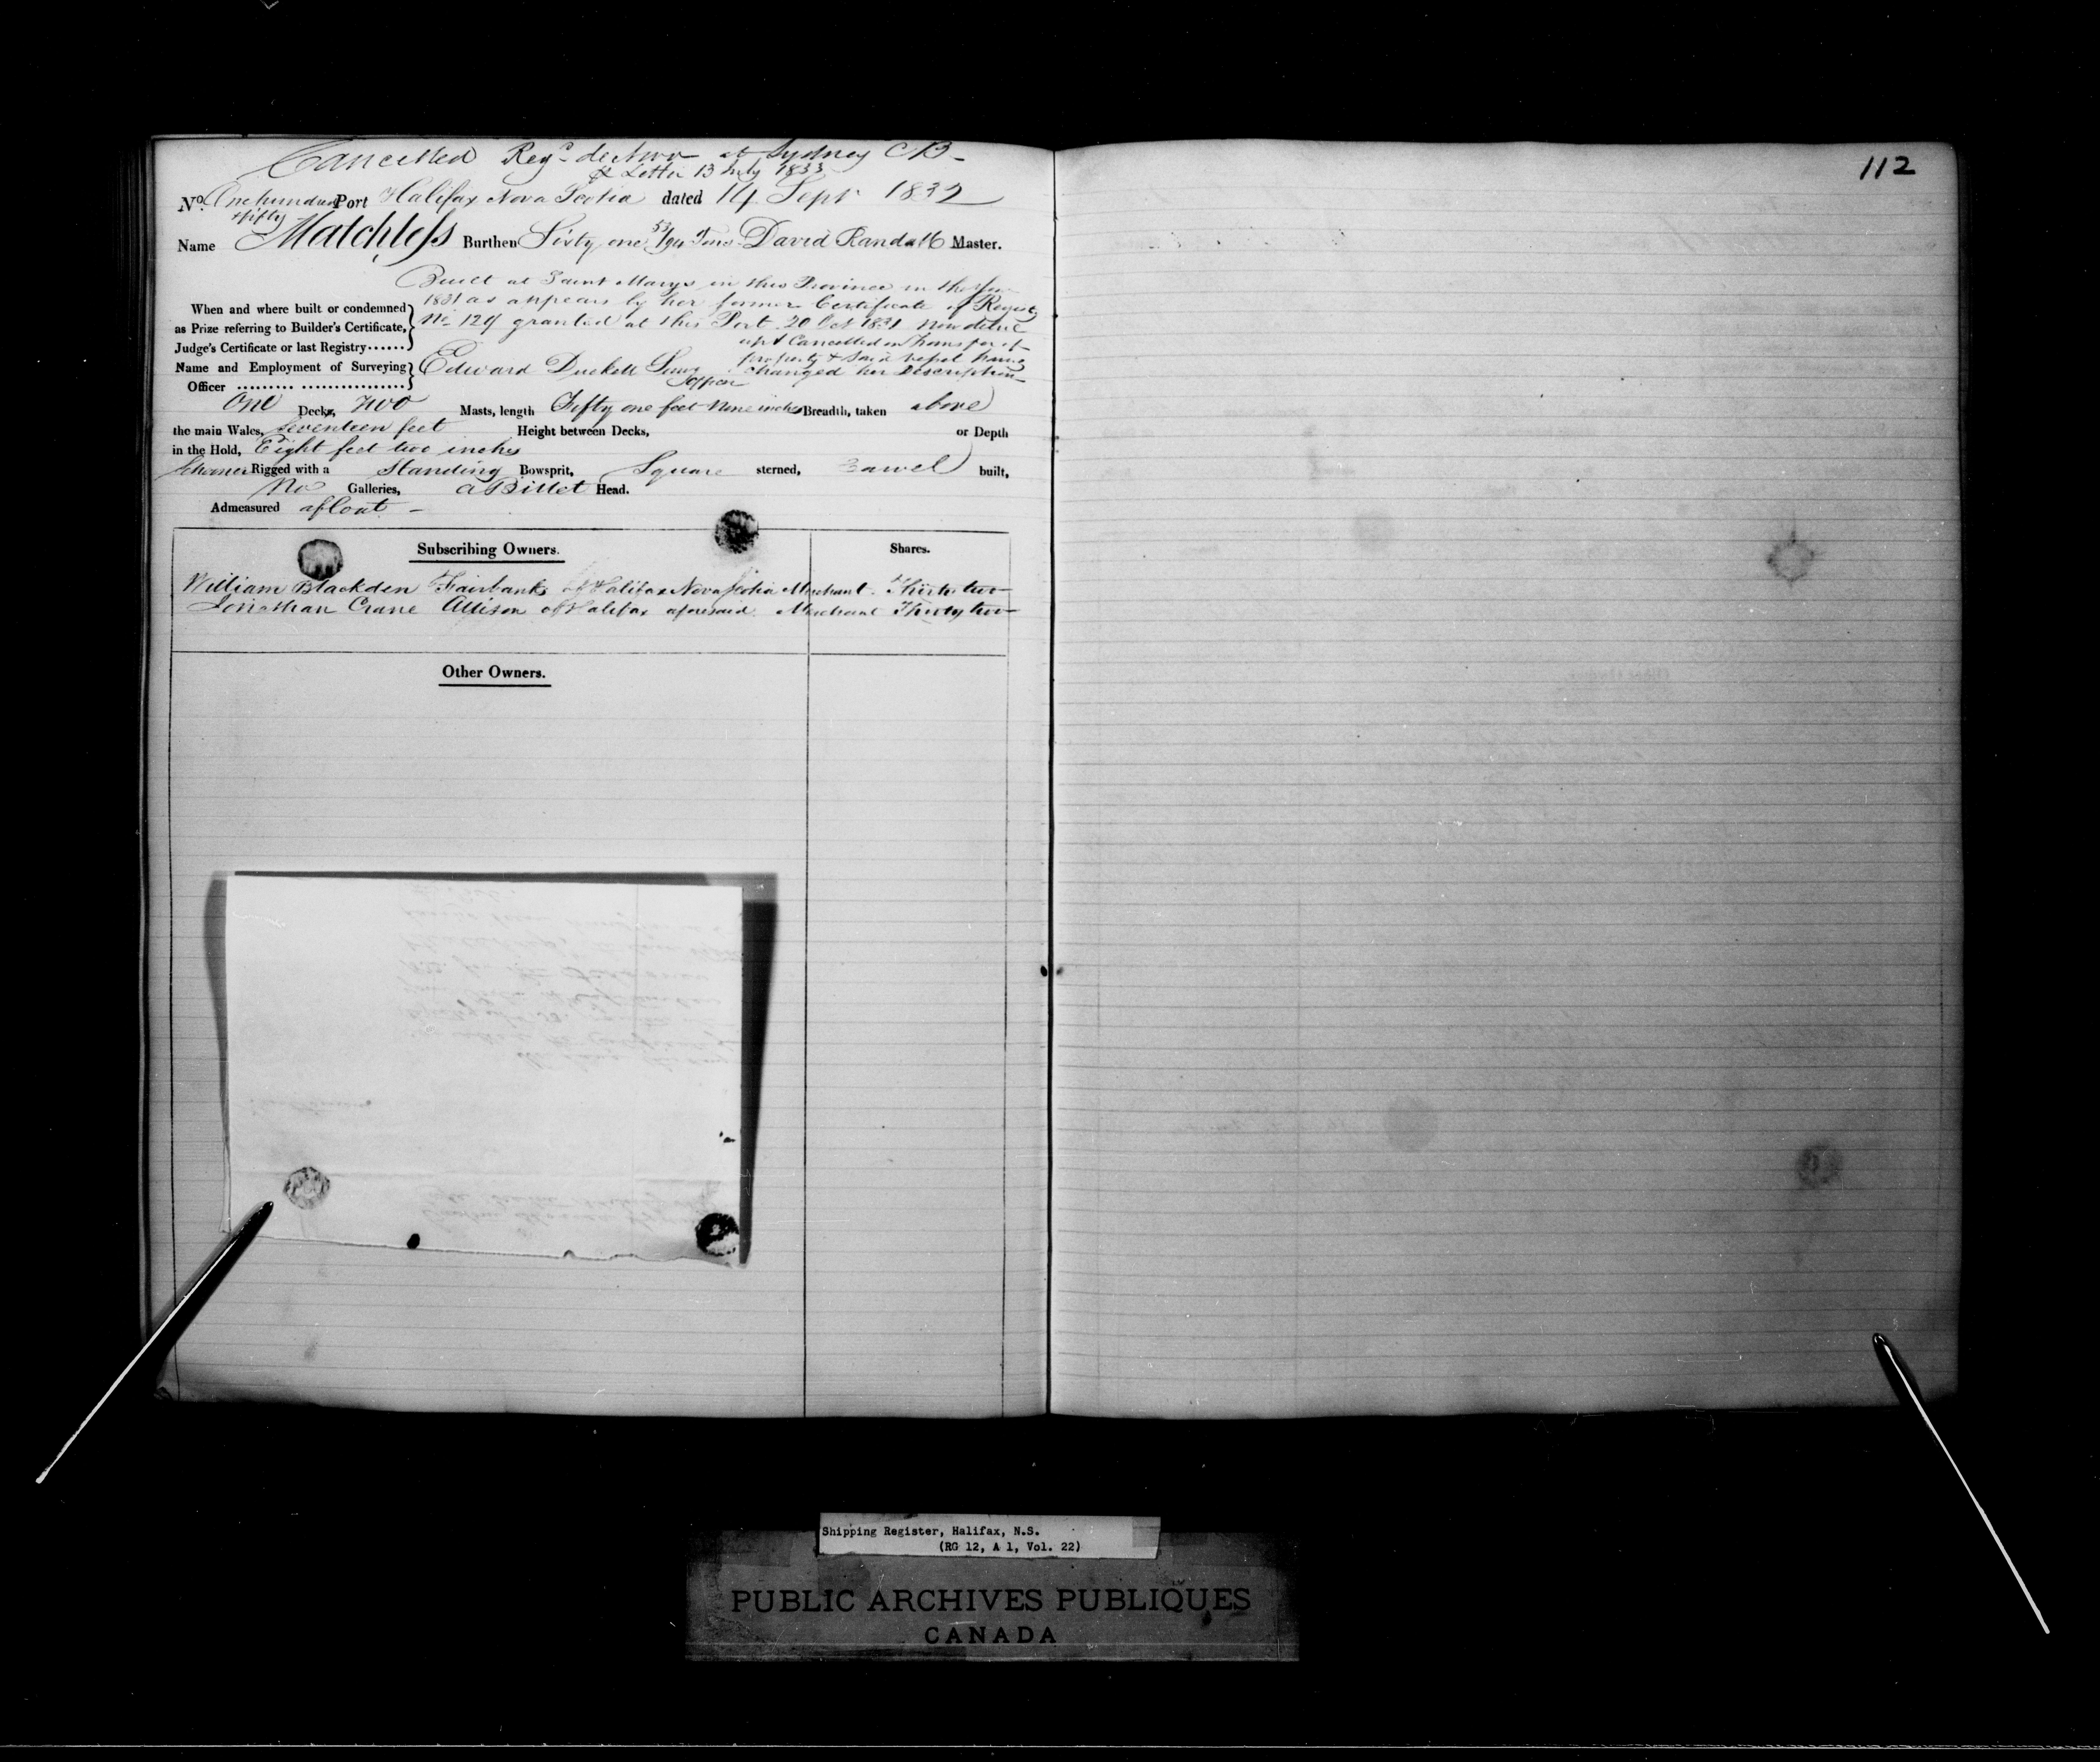 Cancelled Reg.d de Novo at Sydney CB
Letter 13 July 1833
No. One hundred & fifty Port Halifax Nova Scotia dated 14 Sept 1832
Name Matchless Burthen Sixty one 53/94 Tons David Randall Master.
Built at Saint Marys in this Province in the Year
When and where built or condemned 1831 as appears by her former Certificate of Registry
as Prize referring to Builder's Certificate, No. 129 granted at this Port 20 Oct 1831 now deliv
Judge's Certificate or last Registry...... up & Cancelled on Transfer of
property & said vessel having
Name and Employment of Surveying Edward Duckett changed her Description
Officer .......... ................
One Decks, Two Masts, length Fifty one feet Nine inches Breadth, taken above
the main Wales, Seventeen feet Height between Decks, or Depth
in the Hold, Eight feet two inches
Schooner Rigged with a Standing Bowsprit, Square sterned, Carvel built,
No Galleries, a Billet Head.
Admeasured afloat
Subscribing Owners. Shares.
William Blackden Fairbanks of Halifax Nova Scotia Merchant Thirty two
Jonathan Crane Allison of Halifax aforesaid Merchant Thirty two
Other Owners.
112
Shipping Register, Halifax, N.S.
(RG 12, A 1, Vol. 22)
PUBLIC ARCHIVES PUBLIQUES
CANADA